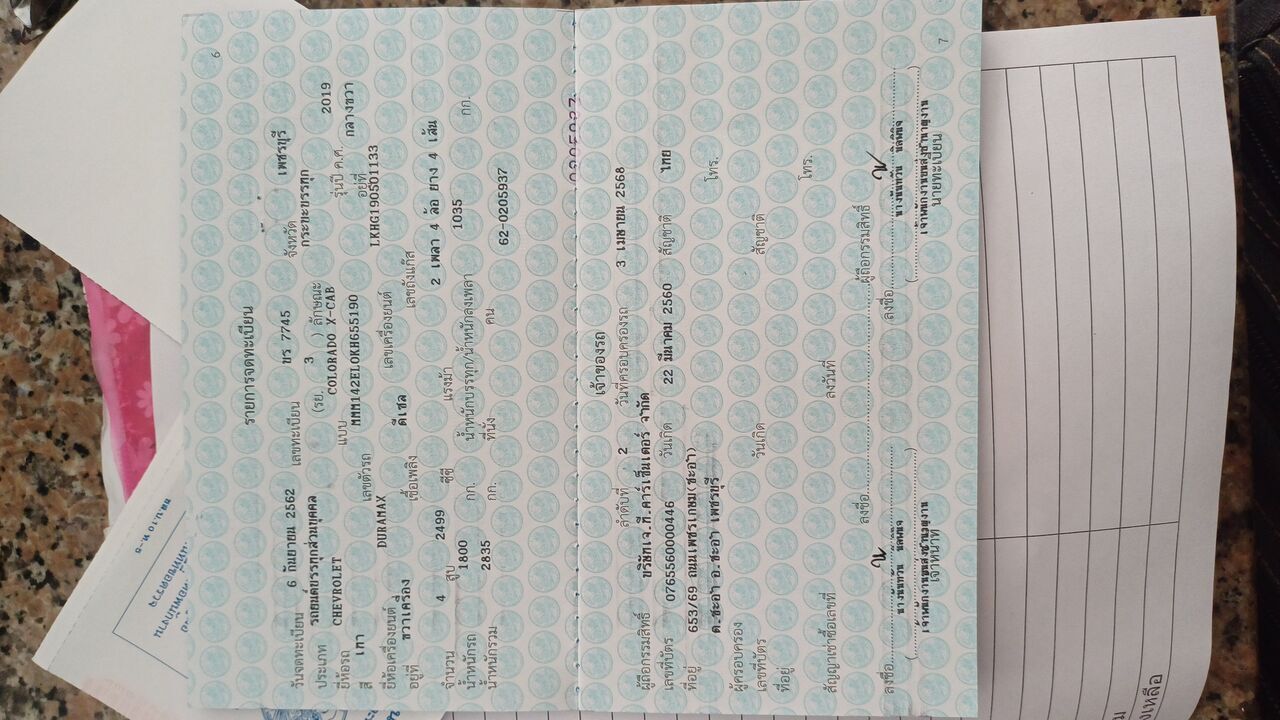 6
รายการจดทะเบียน
วันจดทะเบียน 6 กันยายน 2562 เลขทะเบียน บร 7745 จังหวัด เพชรบุรี
ประเภท รถยนต์บรรทุกส่วนบุคคล (รย. 3 ) ลักษณะ กระบะบรรทุก
ยี่ห้อรถ CHEVROLET แบบ COLORADO X-CAB รุ่นปี ค.ศ. 2019
สี เทา เลขตัวรถ MMM142ELOKH655190 อยู่ที่ กลางขวา
ยี่ห้อเครื่องยนต์ DURAMAX เลขเครื่องยนต์ LKHG190501133
อยู่ที่ ขวาเครื่อง เชื้อเพลิง ดีเซล เลขถังแก๊ส
จำนวน 4 สูบ 2499 ซีซี แรงม้า 2 เพลา 4 ล้อ ยาง 4 เส้น
น้ำหนักรถ 1800 กก. น้ำหนักบรรทุก/น้ำหนักลงเพลา 1035 กก.
น้ำหนักรวม 2835 กก. ที่นั่ง คน 62-0205937
เจ้าของรถ
ลำดับที่ 2 วันที่ครอบครองรถ 3 เมษายน 2568
ผู้ถือกรรมสิทธิ์ บริษัทเจ.ที.คาร์เซ็นเตอร์ จำกัด
เลขที่บัตร 0765560000446 วันเกิด 22 มีนาคม 2560 สัญชาติ ไทย
ที่อยู่ 653/69 ถนนเพชรเกษม(ชะอำ) โทร.
ต.ชะอำ อ.ชะอำ เพชรบุรี
ผู้ครอบครอง
เลขที่บัตร วันเกิด สัญชาติ
ที่อยู่ โทร.
สัญญาเช่าซื้อเลขที่ ลงวันที่
ลงชื่อ ผู้ถือกรรมสิทธิ์
ลงชื่อ ลงชื่อ
เจ้าพนักงานขนส่งชำนาญงาน เจ้าพนักงานขนส่งชำนาญงาน
เจ้าหน้าที่ นายทะเบียน
7